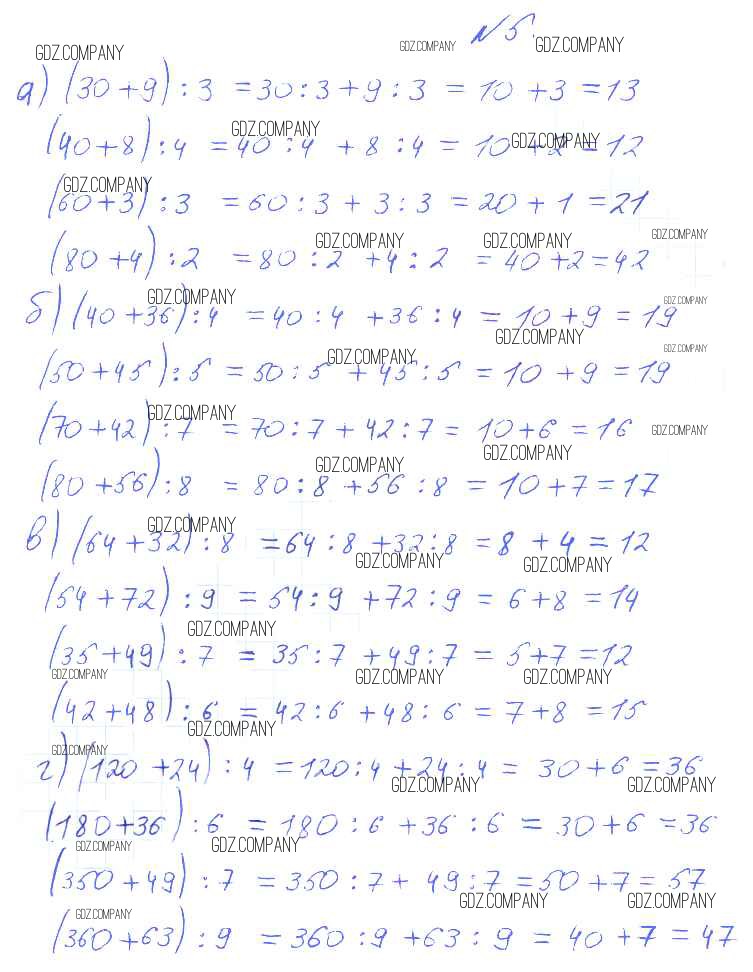 GDZ.COMPANY GDZ.COMPANY №5. GDZ.COMPANY
а) (30+9) : 3 = 30 : 3 + 9 : 3 = 10 + 3 = 13
GDZ.COMPANY GDZ.COMPANY
(40+8) : 4 = 40 : 4 + 8 : 4 = 10 + 2 = 12
GDZ.COMPANY
(60+3) : 3 = 60 : 3 + 3 : 3 = 20 + 1 = 21
GDZ.COMPANY GDZ.COMPANY GDZ.COMPANY
(80+4) : 2 = 80 : 2 + 4 : 2 = 40 + 2 = 42
GDZ.COMPANY GDZ.COMPANY
б) (40+36) : 4 = 40 : 4 + 36 : 4 = 10 + 9 = 19
GDZ.COMPANY GDZ.COMPANY GDZ.COMPANY
(50+45) : 5 = 50 : 5 + 45 : 5 = 10 + 9 = 19
GDZ.COMPANY GDZ.COMPANY
(70+42) : 7 = 70 : 7 + 42 : 7 = 10 + 6 = 16
GDZ.COMPANY GDZ.COMPANY
(80+56) : 8 = 80 : 8 + 56 : 8 = 10 + 7 = 17
GDZ.COMPANY
в) (64+32) : 8 = 64 : 8 + 32 : 8 = 8 + 4 = 12
GDZ.COMPANY GDZ.COMPANY
(54+72) : 9 = 54 : 9 + 72 : 9 = 6 + 8 = 14
GDZ.COMPANY
(35+49) : 7 = 35 : 7 + 49 : 7 = 5 + 7 = 12
GDZ.COMPANY GDZ.COMPANY GDZ.COMPANY
(42+48) : 6 = 42 : 6 + 48 : 6 = 7 + 8 = 15
GDZ.COMPANY GDZ.COMPANY
г) (120+24) : 4 = 120 : 4 + 24 : 4 = 30 + 6 = 36
GDZ.COMPANY GDZ.COMPANY
(180+36) : 6 = 180 : 6 + 36 : 6 = 30 + 6 = 36
GDZ.COMPANY GDZ.COMPANY
(350+49) : 7 = 350 : 7 + 49 : 7 = 50 + 7 = 57
GDZ.COMPANY GDZ.COMPANY GDZ.COMPANY
(360+63) : 9 = 360 : 9 + 63 : 9 = 40 + 7 = 47